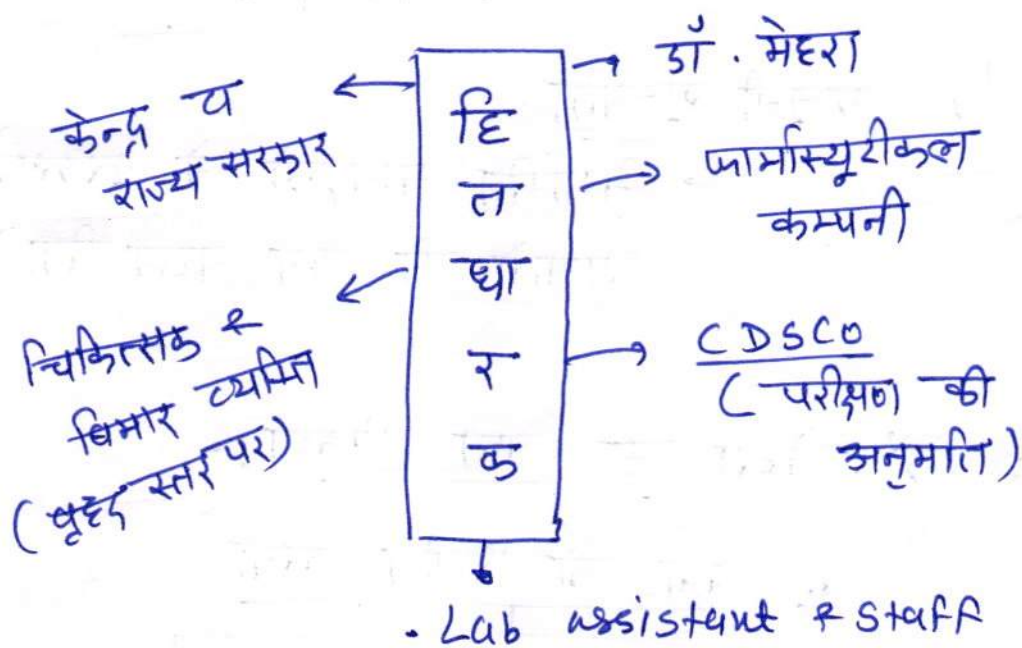 केन्द्र व
राज्य सरकार
चिकित्सक &
बिमार व्यक्ति
(वृहद स्तर पर)
हि
त
धा
र
क
डॉ. मेहरा
फार्मास्यूटीकल
कम्पनी
CDSCO
(परीक्षण की
अनुमति)
. Lab assistant & Staff